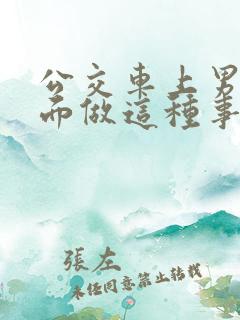 公交車上男
而做這種事
張左
未經同意禁止轉載